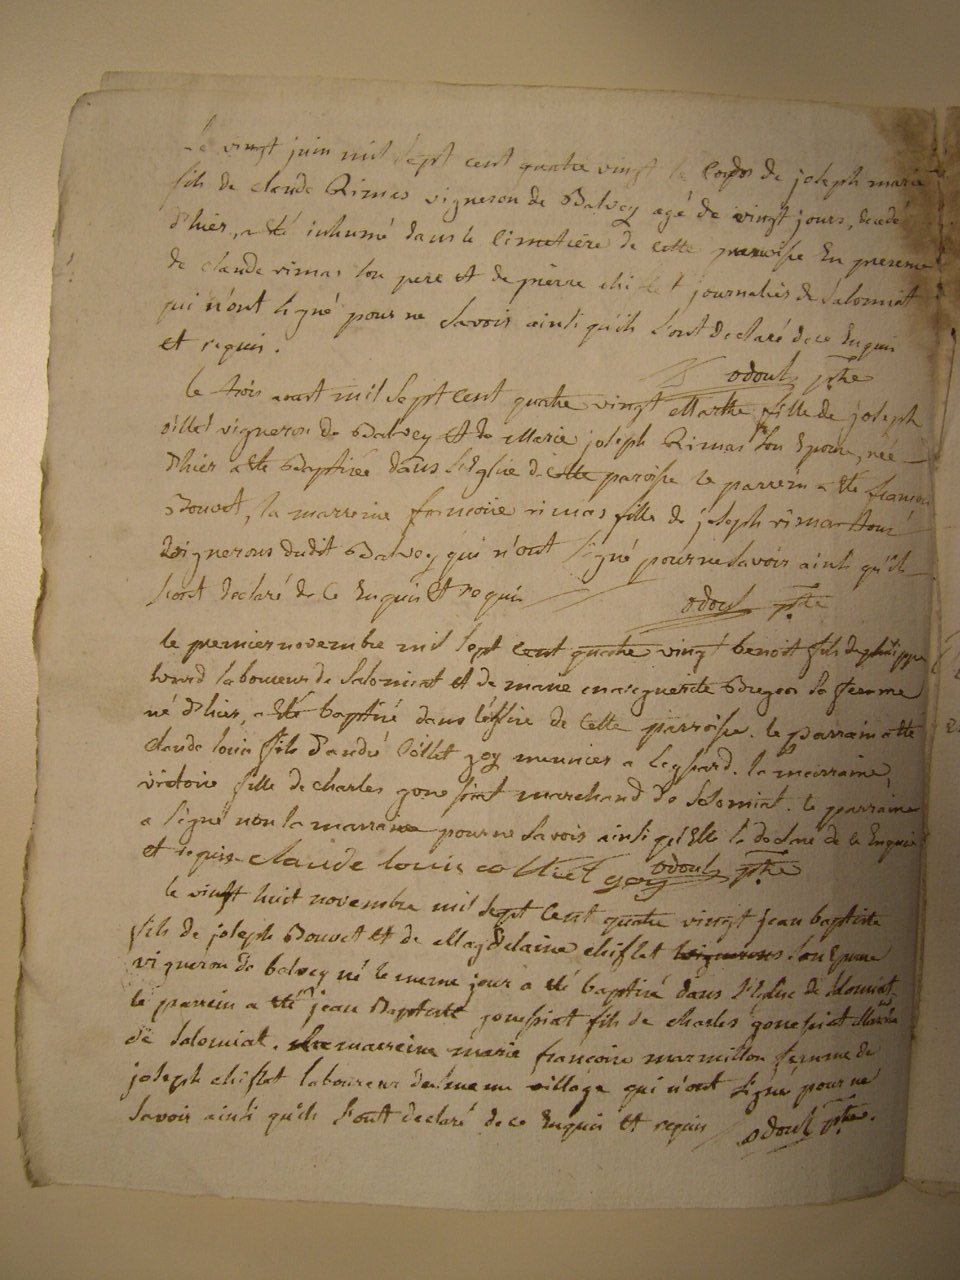 Le vingt juin mil sept cent quatre vingt le corps de joseph marie
fils de claude Rimas vigneron de Balvey agé de vingt jours, decedé
d'hier, a été inhumé dans le cimetière de cette paroisse En presence
de claude rimas son pere et de pierre chiflet journalier de Salomiat
qui n'ont signé pour ne Savoir ainsi qu'ils l'ont declaré de ce Enquis
et requis.
odoul ptre
le trois aout mil sept cent quatre vingt Marthe fille de joseph
vigneron de Balvey et de Marie joseph Rimas son Epouse, née
d'hier a été Baptisée dans l'Eglise de cette paroisse le parrein a été francois
Bouvet, la marreine francoise rimas fille de joseph rimas tous
vignerons dudit Balvey qui n'ont signé pour ne Savoir ainsi qu'ils
l'ont declaré de ce Enquis Et requis
odoul ptre
le premier novembre mil sept cent quatre vingt benoit fils de philippe
laboureur de Salomiat et de marie marguerite sa femme
né d'hier, a été baptisé dans l'église de cette paroisse. le parrain a été
claude louis fils d'andré goy meunier a la marraine
victoire fille de charles marchand de Solomiat. le parraine
a signé non la marraine pour ne Savoir ainsi qu'Elle l'a declaré de ce Enquise
et requise claude louis goy odoul ptre
le vingt huit novembre mil sept cent quatre vingt jean baptiste
fils de joseph Bouvet et de Magdelaine chiflet son Epouse
vigneron de balvey né le meme jour a été baptisé dans l'Eglise de Solomiat
le parrein a été jean Baptiste gonefriat fils de charles gonefriat
de Solomiat. La marreine marie francoise marmillon femme de
joseph chiflet laboureur du meme village qui n'ont signé pour ne
Savoir ainsi qu'ils l'ont declaré de ce Enquis et requis odoul ptre.